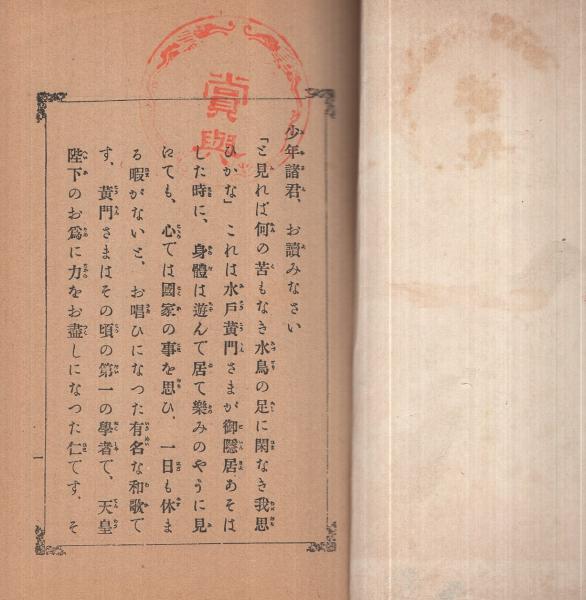 賞與
少年諸君、お讀みなさい
「と見れば何の苦もなき水鳥の足に閑なき我思
ひかな」これは水戸黄門さまが御隱居あそは
した時に、身體は遊んて居て樂みのやうに見
にても、心ては國家の事を思ひ、一日も休ま
る暇がないと、お唱ひになつた有名な和歌て
す、黄門さまはその頃の第一の學者て、天皇
陛下のお爲に力をお盡しになつた仁てす、そ
一